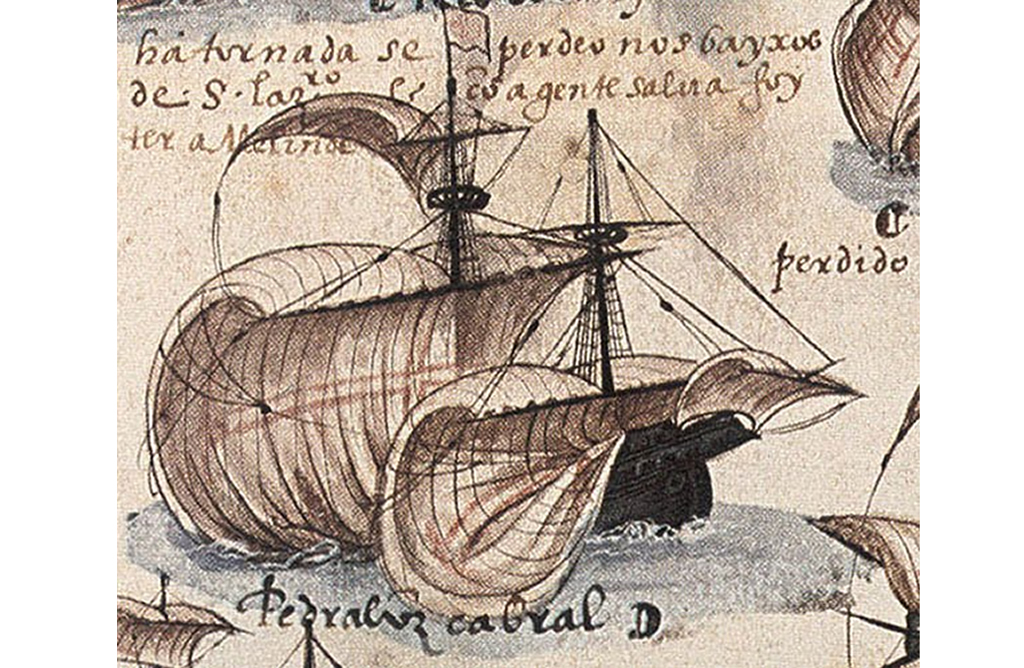 há tornada se perdeo nos bayxos
de · S · laz.ro cõ a gente salua foy
ter a Melinde
perdido
Pedralvrz cabral D